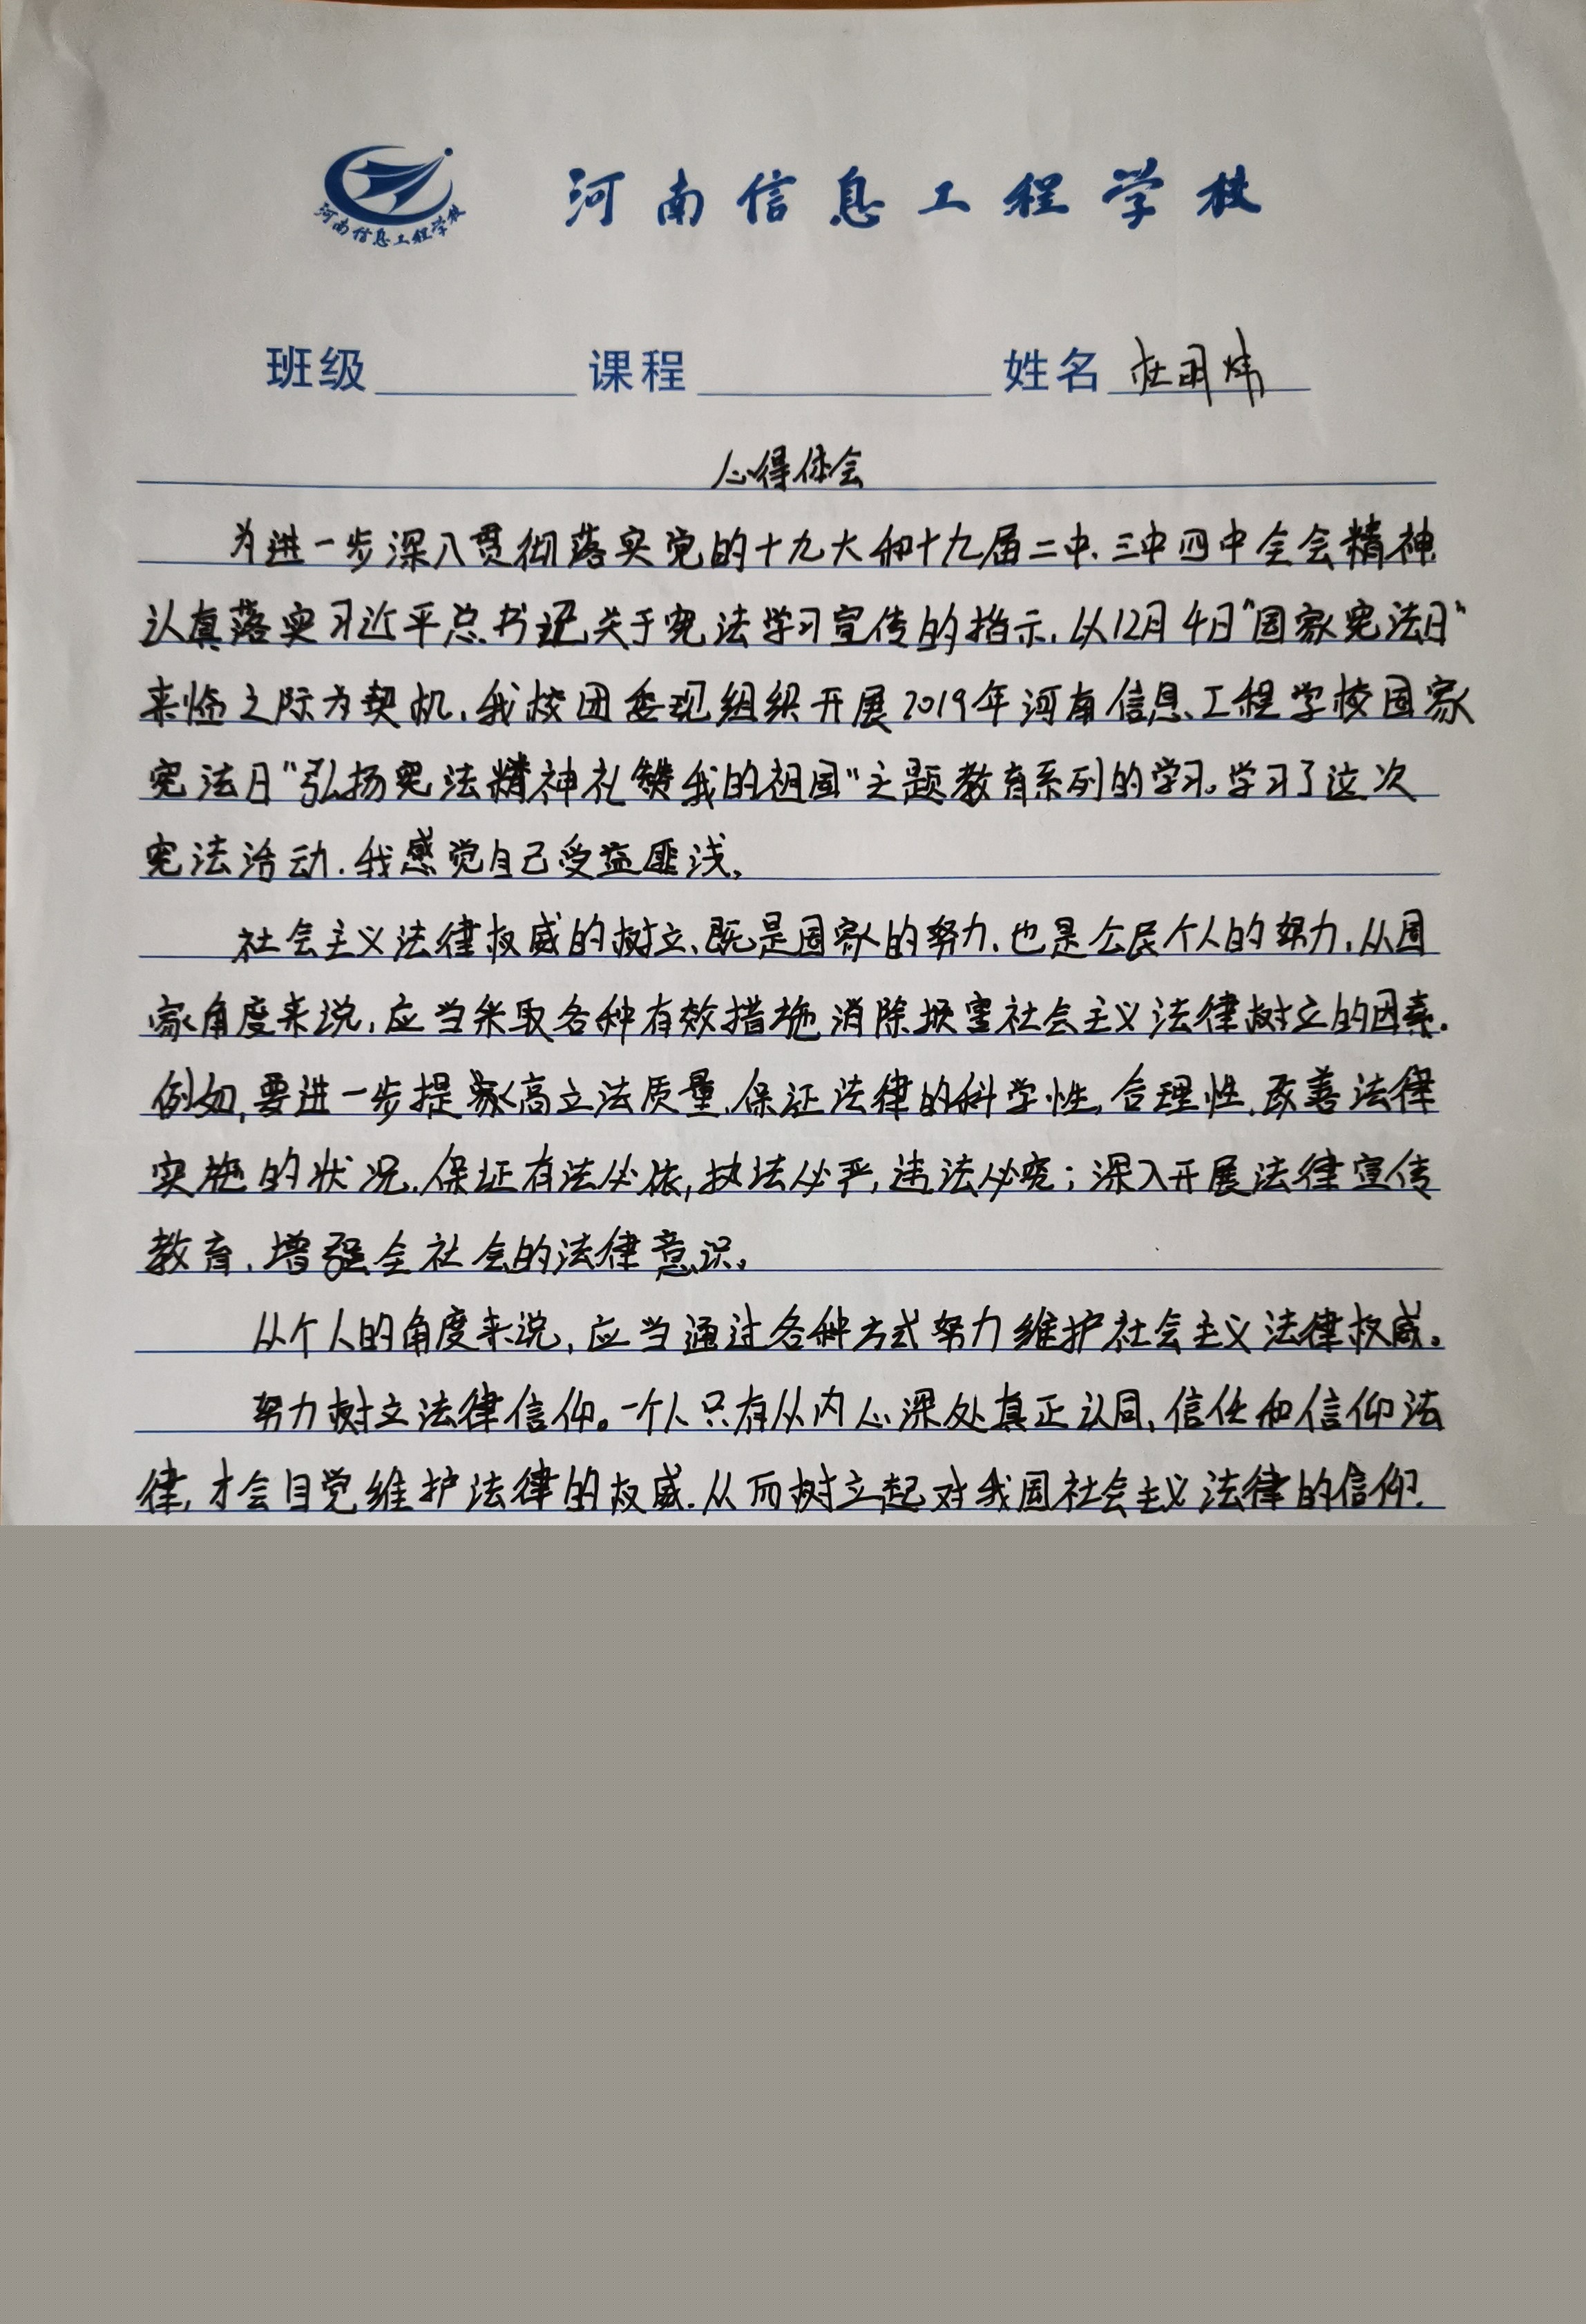 河南信息工程学校
河南信息工程学校
班级 课程 姓名 杜明炜
心得体会
为进一步深入贯彻落实党的十九大和十九届二中、三中四中全会精神
认真落实习近平总书记关于宪法学习宣传的指示,以12月4日"国家宪法日"
来临之际为契机,我校团委现组织开展2019年河南信息工程学校国家
宪法日"弘扬宪法精神礼赞我的祖国"主题教育系列的学习。学习了这次
宪法活动,我感觉自己受益匪浅。
社会主义法律权威的树立、既是国家的努力、也是公民个人的努力,从国
家角度来说,应当采取各种有效措施消除损害社会主义法律树立的因素.
例如,要进一步提家高立法质量,保证法律的科学性,合理性,改善法律
实施的状况,保证有法必依,执法必严,违法必究;深入开展法律宣传
教育,增强全社会的法律意识。
从个人的角度来说,应当通过各种方式努力维护社会主义法律权威。
努力树立法律信仰。一个人只有从内心深处真正认同,信任和信仰法
律,才会自觉维护法律的权威.从而树立起对我国社会主义法律的信仰.